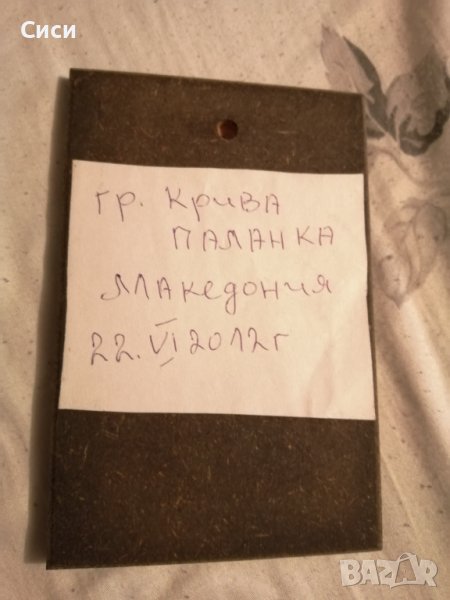 Сиси
гр. Крива
Паланка
Македония
22. VI 2012 г
BAZAR